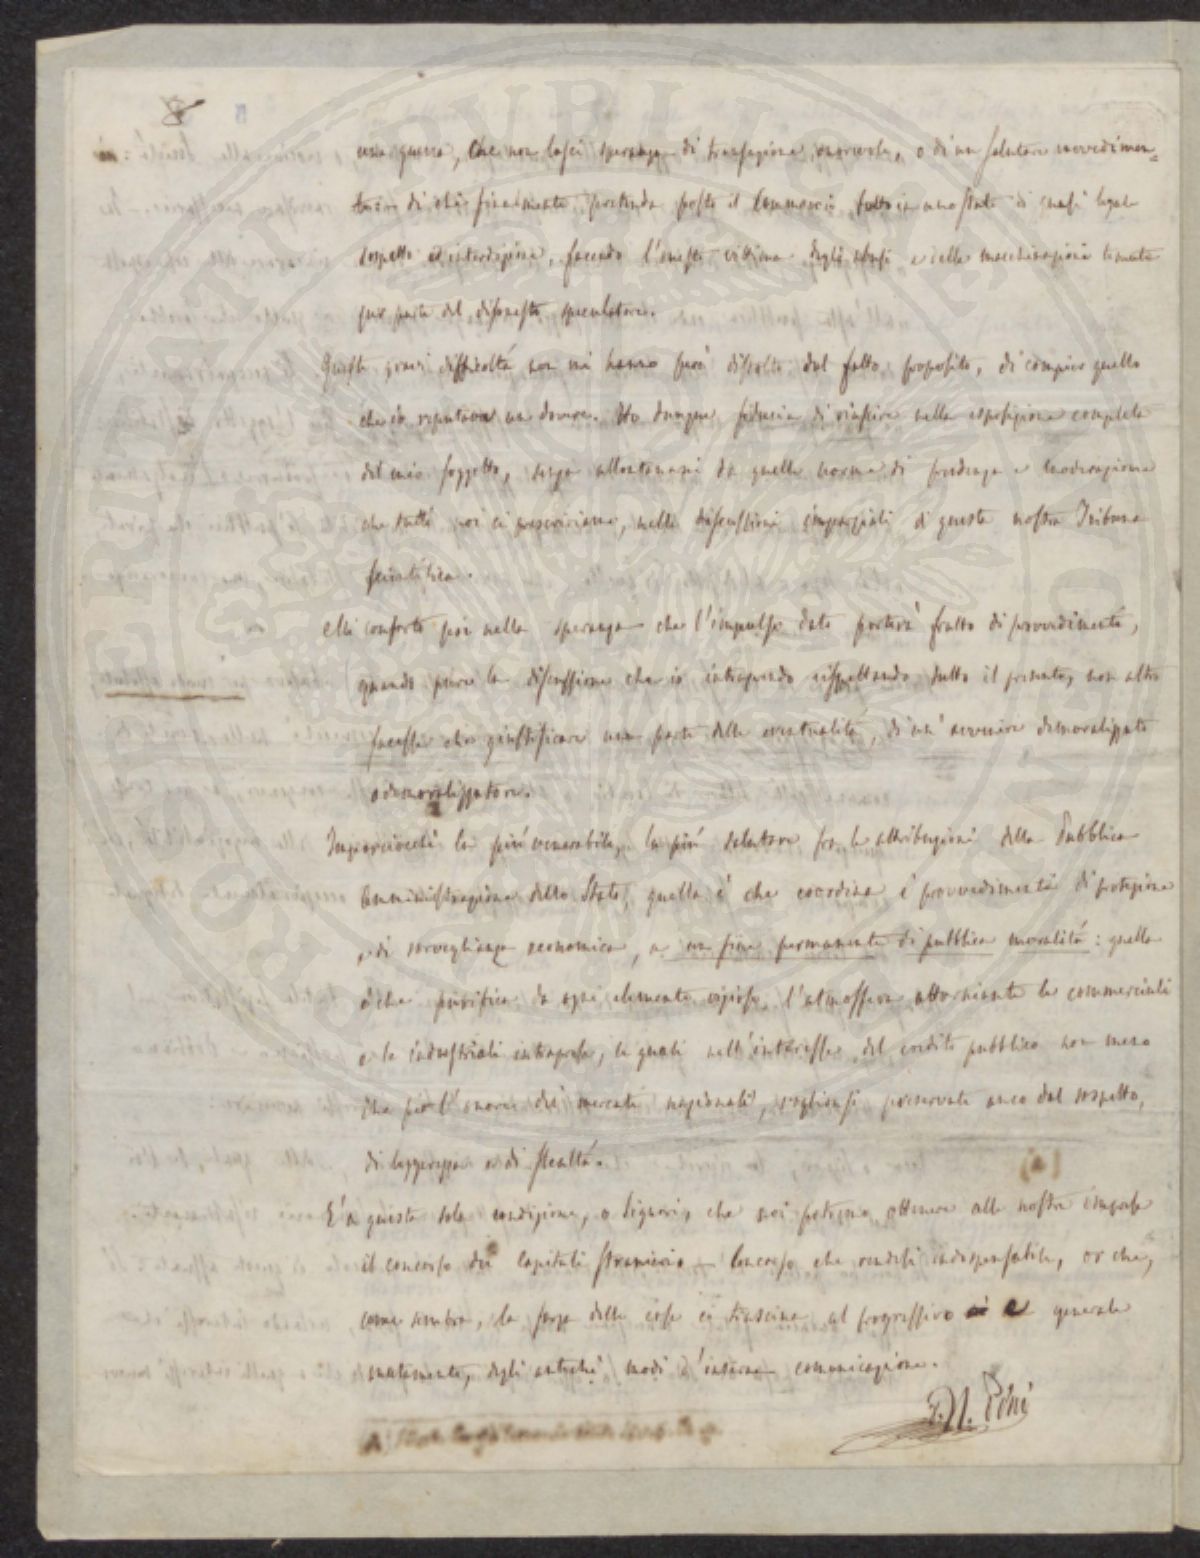 8
una guerra, che non lasci speranza di transazione onorevole, o di un salutare
di chi finalmente pretenda posto il Commercio tutto in uno stato di quasi legale
sospetto ed interdizione, facendo l'onesto vittima degli abusi e delle macchinazioni temute
per parte del disonesto speculatore.
Queste gravi difficoltà non mi hanno però distolto dal fatto proposito, di compier quello
che io reputava un dovere. Ho dunque fiducia di riuscire nella esposizione completa
del mio soggetto, senza allontanarmi da quelle norme di prudenza e moderazione
che tutti noi ci prescriviamo, nelle discussioni imparziali di questa nostra Tribuna
scientifica.
Mi conforto poi nella speranza che l'impulso dato porterà frutto di provvedimenti,
quando pure la discussione che io intraprendo rispettando tutto il presente, non altro
facesse che giustificare una parte delle eventualità, di un' avvenire demoralizzato
o demoralizzatore.
Imperciocchè la più venerabile, la più salutare fra le attribuzioni della Pubblica
Amministrazione dello Stato, quella è che coordina i provvedimenti di protezione
e di sorveglianza economica, a un fine permanente di pubblica moralità: quella
è che purifica da ogni elemento vizioso, l'atmosfera attorniante le commerciali
e le industriali intraprese, le quali nell'interesse del credito pubblico non meno
che per l'onore dei mercati nazionali, voglionsi preservate anco dal sospetto,
di leggerezza o di slealtà.
(a)
E' a questa sola condizione, o Signori, che noi potremo ottenere alle nostre imprese
il concorso dei Capitali stranieri – Concorso che rendesi indispensabile, or che,
come sembra, la forza delle cose ci trascina al progressivo e generale
mutamento, degli antichi modi d'interna comunicazione.
P. N. Poni